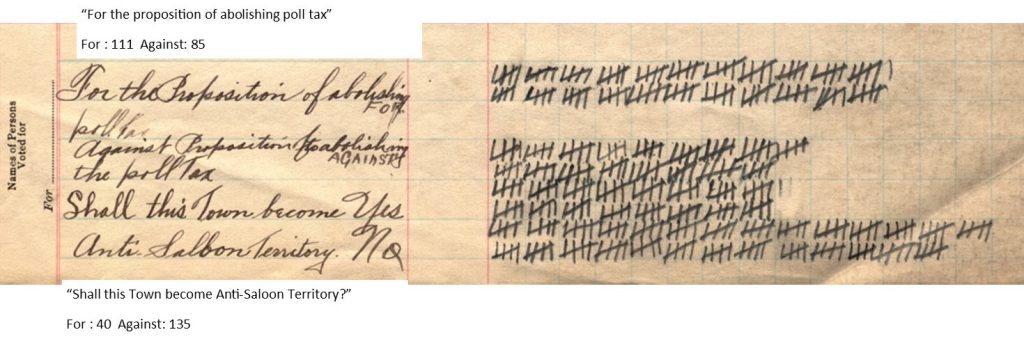 “For the proposition of abolishing poll tax”
For : 111 Against: 85
Names of Persons
Voted for
For
For the Proposition of abolishing
FOR
poll tax
Against Proposition to abolishing
AGAINST
the poll Tax
Shall this Town become Yes
Anti. Saloon Territory. No
“Shall this Town become Anti-Saloon Territory?”
For : 40 Against: 135